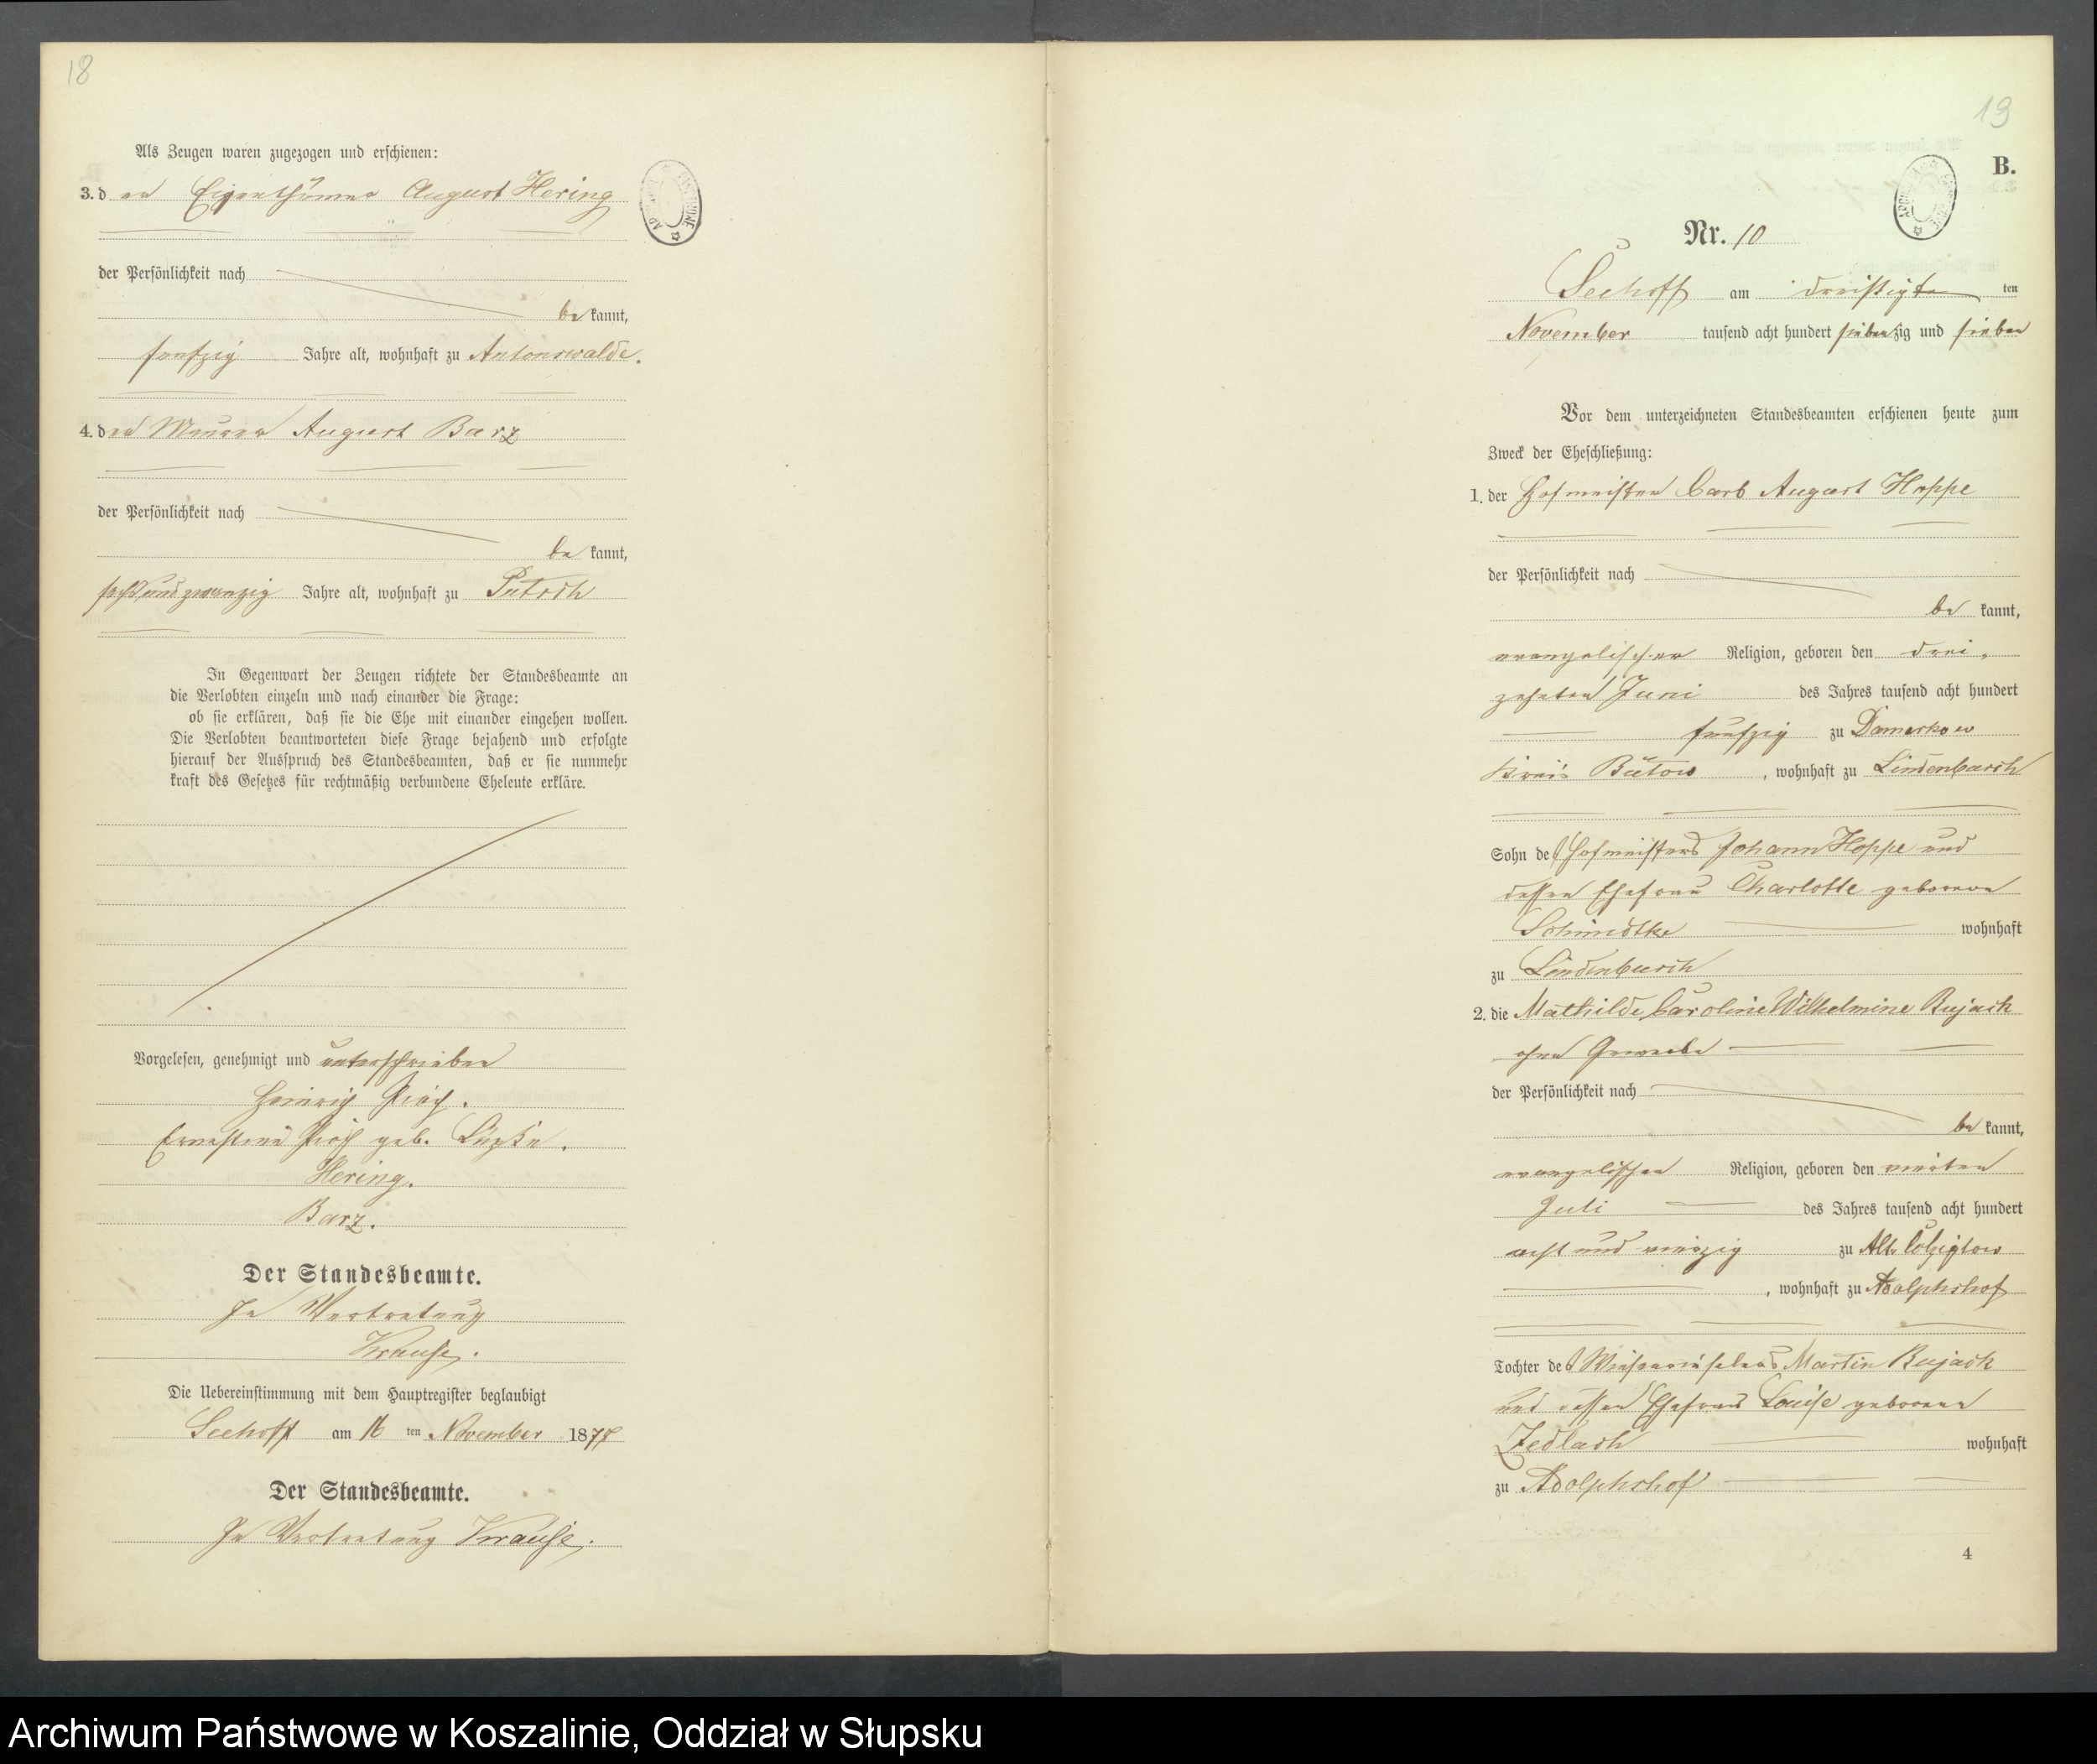 18
Als Zeugen waren zugezogen und erschienen:
3. d er Eigenthümer August Hering
der Persönlichkeit nach
be kannt,
funfzig Jahre alt, wohnhaft zu Antonswalde.
4. der Maurer August Barz
der Persönlichkeit nach
be kannt,
sechsundzwanzig Jahre alt, wohnhaft zu
In Gegenwart der Zeugen richtete der Standesbeamte an
die Verlobten einzeln und nach einander die Frage:
ob sie erklären, daß sie die Ehe mit einander eingehen wollen.
Die Verlobten beantworteten diese Frage bejahend und erfolgte
hierauf der Ausspruch des Standesbeamten, daß er sie nunmehr
kraft des Gesetzes für rechtmäßig verbundene Eheleute erkläre.
Vorgelesen, genehmigt und unterschrieben
Heinrich
Ernestine geb.
Hering.
Barz.
Der Standesbeamte.
In Vertretung
Krause.
Die Uebereinstimmung mit dem Hauptregister beglaubigt
Seehoff am 16 ten November 1877
Der Standesbeamte.
In Vertretung Krause.
19
B.
Nr. 10
Seehoff am dreißigten ten
November tausend acht hundert siebenzig und sieben
Vor dem unterzeichneten Standesbeamten erschienen heute zum
Zweck der Eheschließung:
1. der Hofmeister Carl August Hoppe
der Persönlichkeit nach
be kannt,
evangelischer Religion, geboren den drei-
zehnten Juni des Jahres tausend acht hundert
funfzig zu Damerkow
Kreis Bütow, wohnhaft zu Lindenbusch
Sohn des Hofmeisters Johann Hoppe und
dessen Ehefrau Charlotte geborene
Schmidtke wohnhaft
zu Lindenbusch
2. die Mathilde Caroline Wilhelmine Bujack
ohne Gewerbe
der Persönlichkeit nach
be kannt,
evangelischer Religion, geboren den vierten
Juli des Jahres tausend acht hundert
acht und vierzig zu Alt Colziglow
, wohnhaft zu Adolphshof
Tochter des Martin Bujack
und dessen Ehefrau Louise geborene
Zedlack wohnhaft
zu Adolphshof
4
Archiwum Państwowe w Koszalinie, Oddział w Słupsku